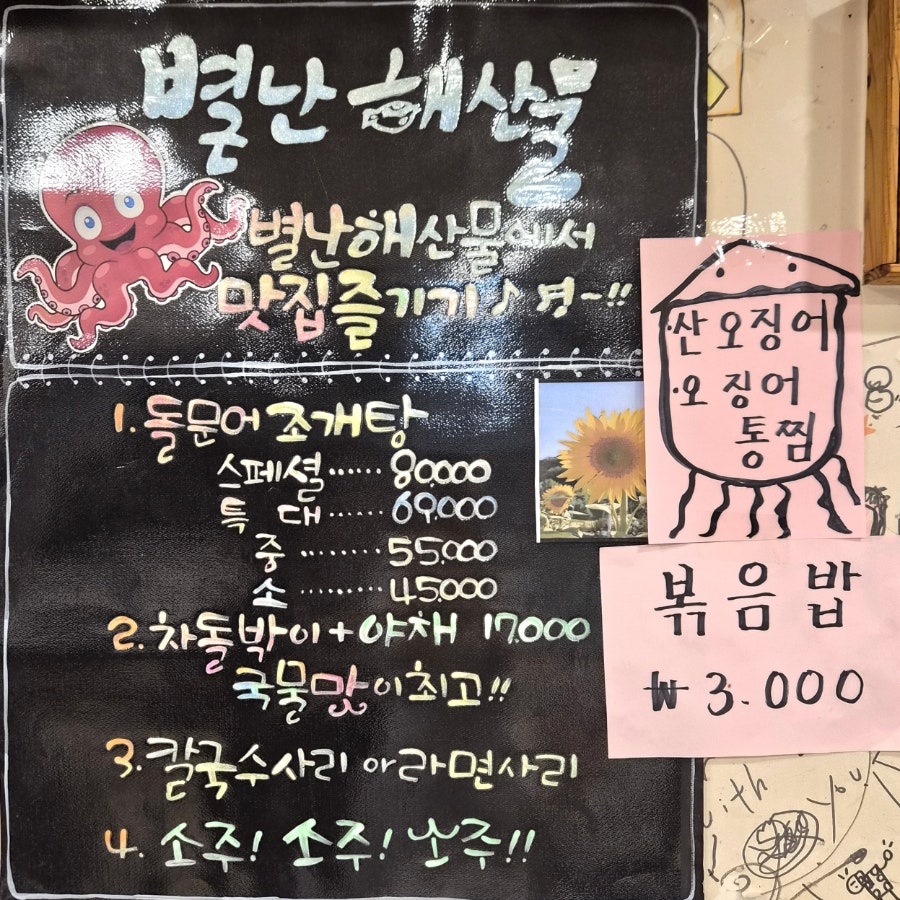 별난 해산물
별난해산물에서
맛집즐기기♪ 명~!!
1. 돌문어 조개탕
스페셜 ...... 80.000
특 대 ...... 69.000
중 ........ 55.000
소 ......... 45.000
2. 차돌박이+야채 17.000
국물맛이최고!!
3. 칼국수사리 or 라면사리
4. 소주! 소주! 소주!!
·산 오징어
·오징어
통찜
볶음밥
₩ 3.000
with
you